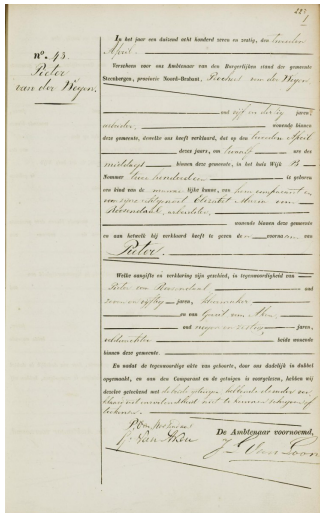 227
N°. 43.
Pieter
van der Wegen.
In het jaar een duizend acht honderd zeven en zestig, den tweeden
April
Verscheen voor ons Ambtenaar van den Burgerlijken stand der gemeente
Steenbergen, provincie Noord-Brabant, van der Wegen
oud vijf en dertig jaren,
arbeider, wonende binnen
deze gemeente, dewelke ons heeft verklaard, dat op den tweeden April
dezes jaars, om twaalf ure des
middags binnen deze gemeente, in het huis Wijk B
Nommer twee honderd en is geboren
een kind van de mannelijke kunne, van hem comparant en
van zijne Elisabet Maria van
Roosendaal, arbeidster
wonende binnen deze gemeente
en aan hetwelk hij verklaard heeft te geven den voornaam van
Pieter.
Welke aangifte en verklaring zijn geschied, in tegenwoordigheid van
Pieter van Roosendaal oud
zeven en vijftig jaren,
en van Gerrit van Aken,
oud negen en zestig jaren,
veldwachter beide wonende
binnen deze gemeente.
En nadat de tegenwoordige akte van geboorte, door ons dadelijk in dubbel
opgemaakt, en aan den Comparant en de getuigen is voorgelezen, hebben wij
dezelve geteekend met beide getuigen hebbende
verklaard niet te kunnen schrijven of
teekenen.
P. van Roosendaal
G. van Aken
De Ambtenaar voornoemd,
van Loon